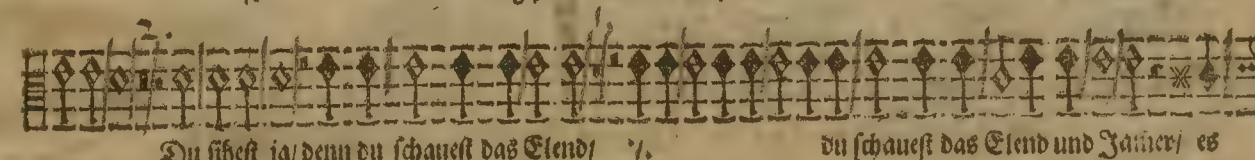 Du siheſt ja/ denn du ſchaueſt das Elend/ ⁒. du ſchaueſt das Elend und Jam̃er/ es